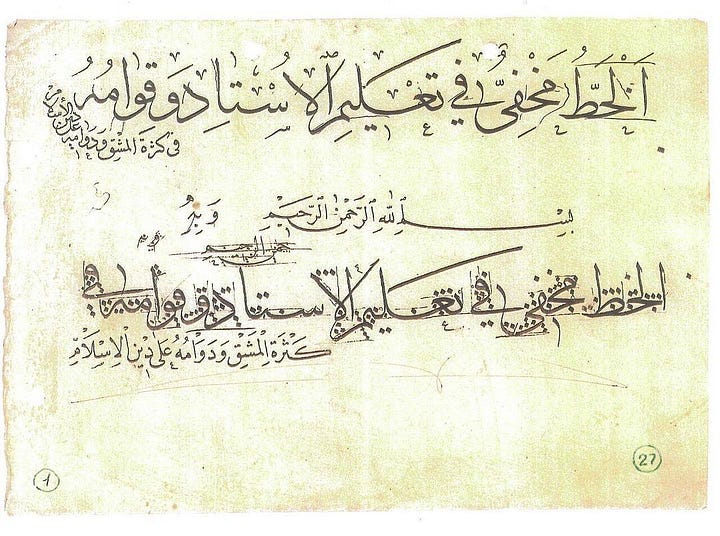 اَلْخَطُّ مَخْفِيٌّ فِي تَعْلِيمِ الْاُسْتَاذِ وَقِوَامُهُ
فِي كَثْرَةِ الْمَشْقِ وَدَوَامُهُ
عَلَى دِينِ الْاِسْلَامِ
بِسْمِ اللّٰهِ الرَّحْمٰنِ الرَّحِيمِ وَبِهِ
الخط مخفى فى تعليم الاستاذ وقوامه فى
كَثْرَةِ الْمَشْقِ وَدَوَامُهُ عَلَى دِينِ الْاِسْلَامِ
1
27